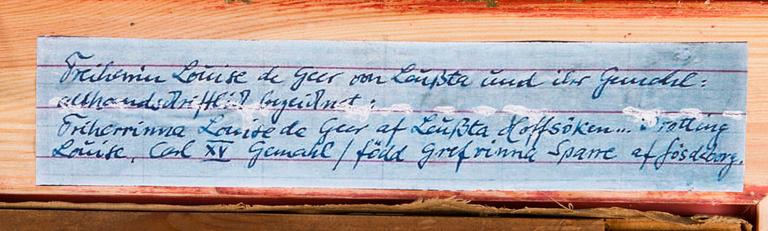 Freiherrin Louise de Geer von Leußta und ihr Gemahl:
althandschriftlich bezeichnet:
Friherrinna Louise de Geer af Leußta Hoffsöken... Drotting
Louise, Carl XV Gemahl / född Grefvinna Sparre af